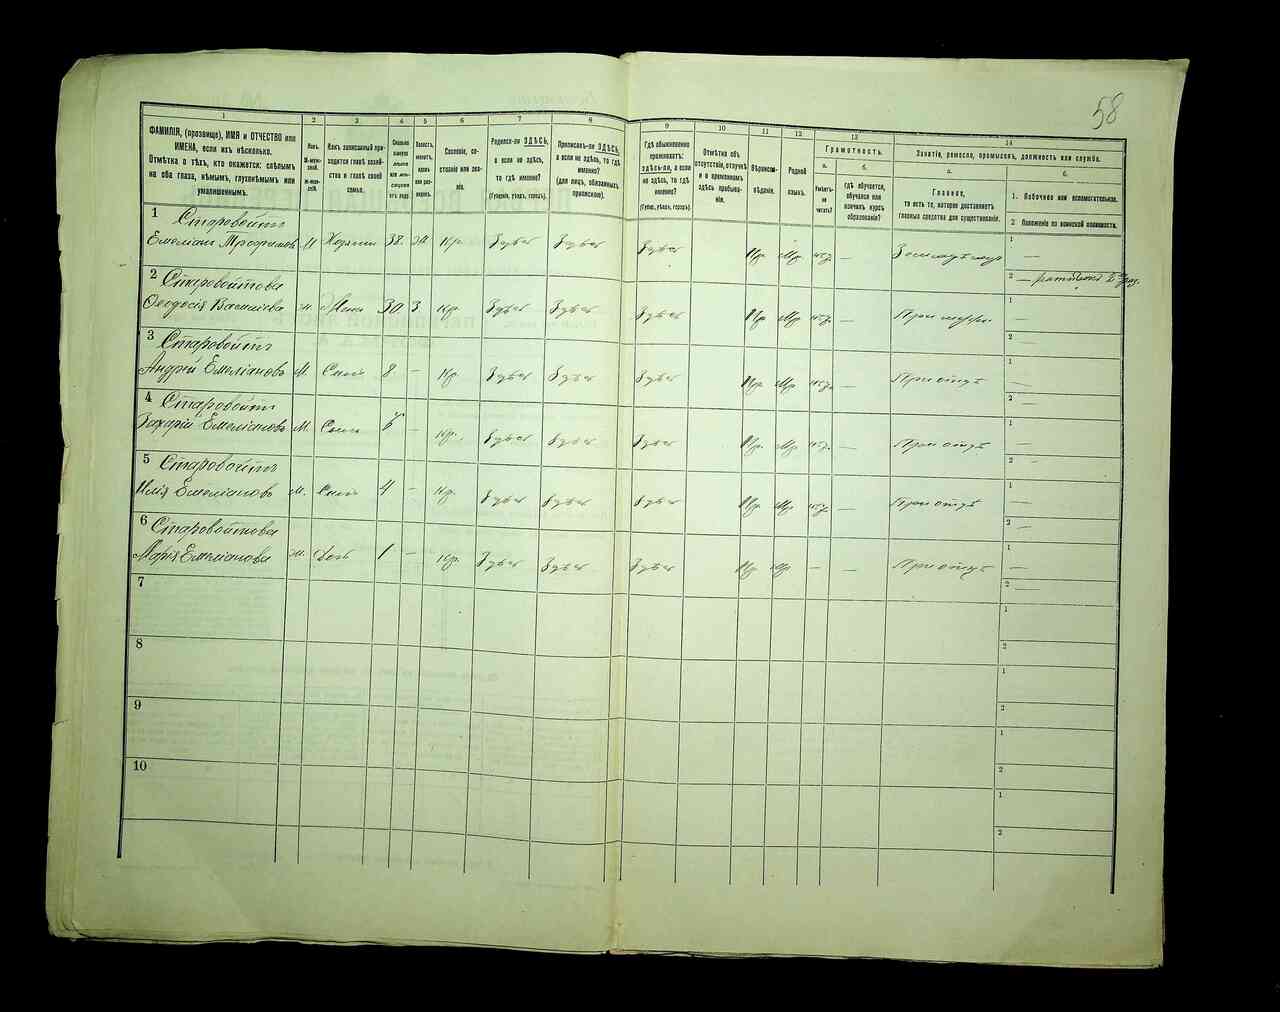 58
1 2 3 4 5 6 7 8 9 10 11 12 13 14
ФАМИЛІЯ, (прозвище), ИМЯ и ОТЧЕСТВО или
ИМЕНА, если ихъ нѣсколько.
Отмѣтка о тѣхъ, кто окажется: слѣпымъ
на оба глаза, нѣмымъ, глухонѣмымъ или
умалишеннымъ.
Полъ.
М-мужской.
Ж-женскій.
Какъ записанный приходится
главѣ хозяйства и главѣ своей
семьи.
Сколько
минуло
лѣтъ
или мѣсяцевъ
отъ роду.
Холостъ,
женатъ,
вдовъ
или разведенъ.
Сословіе, состояніе
или званіе.
Родился-ли ЗДѢСЬ,
а если не здѣсь,
то гдѣ именно?
(Губернія, уѣздъ, городъ).
Приписанъ-ли ЗДѢСЬ,
а если не здѣсь, то гдѣ
именно?
(для лицъ, обязанныхъ
припискою).
Гдѣ обыкновенно
проживаетъ:
здѣсь-ли, а если
не здѣсь, то гдѣ
именно?
(Губерн., уѣздъ, городъ).
Отмѣтка объ
отсутствіи, отлучкѣ
и о временномъ
здѣсь пребываніи.
Вѣроисповѣданіе.
Родной
языкъ.
Грамотность.
а.
Умѣетъ-ли
читать?
б.
гдѣ обучается,
обучался или
кончилъ курсъ
образованія?
Занятіе, ремесло, промыселъ, должность или служба.
а.
Главное,
то есть то, которое доставляетъ
главныя средства для существованія.
б.
1. Побочное или вспомогательное.
2. Положеніе по воинской повинности.
1 Старовойтъ
Емеліан Трофимовъ М Хозяинъ 38. Кр. Здѣсь Здѣсь Здѣсь Пр. Мр. — 1 —
2 —
2 Старовойтова
Ѳеодосія Васильева ж. Жена 30. З. Кр. Здѣсь Здѣсь Здѣсь Пр. Мр. — При мужѣ 1 —
2 —
3 Старовойтъ
Андрій Емеліановъ М. Сынъ 8. — Кр. Здѣсь Здѣсь Здѣсь Пр. Мр. — При отцѣ 1 —
2 —
4 Старовойтъ
Захарій Емеліановъ М. Сынъ 6 — Кр. Здѣсь Здѣсь Здѣсь Пр. Мр. — При отцѣ 1 —
2 —
5 Старовойтъ
Илія Емеліановъ М. Сынъ 4 — Кр. Здѣсь Здѣсь Здѣсь Пр. Мр. — При отцѣ 1 —
2 —
6 Старовойтова
Марія Емеліанова ж. Дочь 1 — Кр. Здѣсь Здѣсь Здѣсь Пр. Мр. — — При отцѣ 1 —
2 —
7 1
2
8 1
2
9 1
2
10 1
2